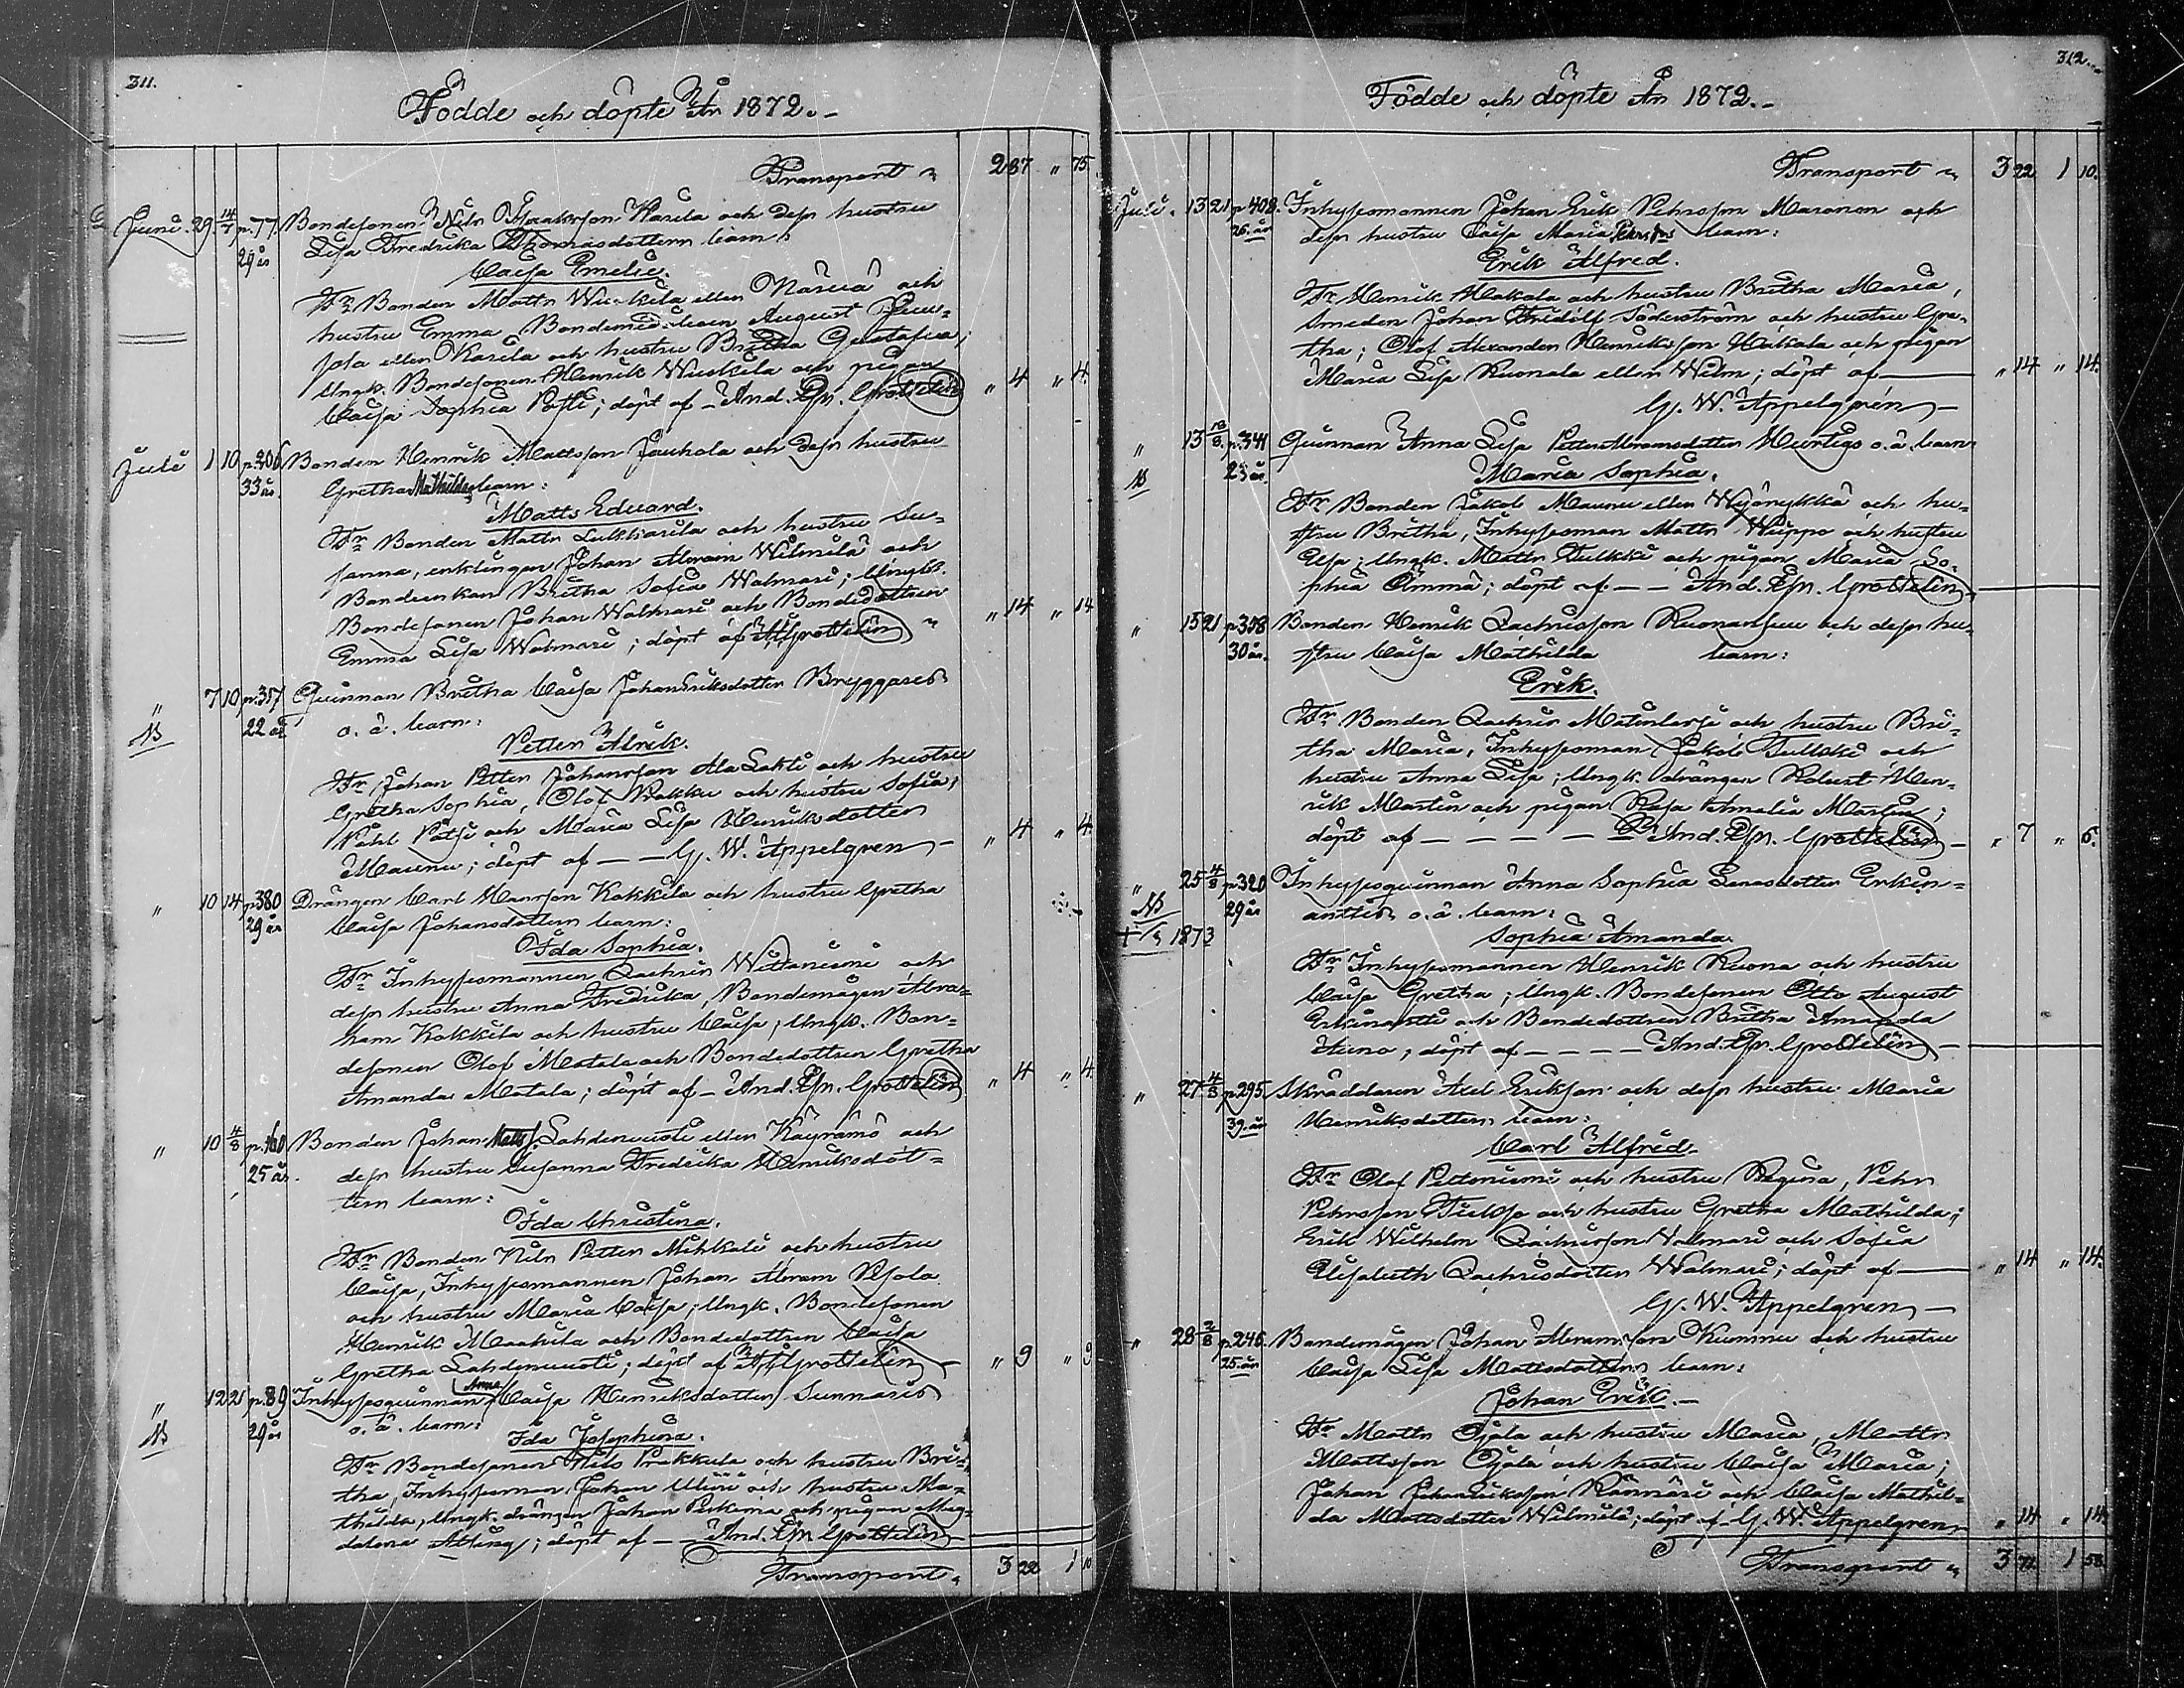 311.
Födde och döpte År 1872.
Transport " 2 87 " 75.
Juni. 29. 14/7 p. 77. Bondesonen Nils Isaaksson Karila och dess hustru
29 år Lisa Fredrika Thomasdotters barn:
Caisa Emelie.
Fr Bonden Matts Wuekila eller Närvä och
hustru Emma, Bonde August
sola eller Karila och hustru Britha Gustafva;
Ungk. Bondesonen Henrik Wuekila och pigan
Caisa Sophia Posti; döpt af - And. Efr. Grottelin " 4 " 4.
Juli 1 10 p. 206 Bonden Henrik Mattsson Jauhola och dess hustru
33 år. Gretha Mathildas barn:
Matts Eduard.
Fr Bonden Matts Lukkarila och hustru Su-
sanna, enklingen Johan Abram Wilmilä och
Bondeenkan Britha Sofia Walmari; Ungk.
Bondesonen Johan Walmari och Bondedottren
Emma Lisa Walmari; döpt af A. Grottelin " " 14 " 14
" 7 10 p. 317 Quinnan Britha Caisa Johan Eriksdotter Bryggares
NB 22 år o. ä. barn:
Petter Alrik.
Fr Johan Petter Johansson Ala Lakti och hustru
Gretha Sophia, Olof Prakku och hustru Sofia,
Påhl Pätsi och Maria Lisa Henriksdotter
Maunu; döpt af - - G. W. Appelgren - " 4 " 4
" 10 14 p. 380 Drängen Carl Mansson Kokkila och hustru Gretha
29 år Caisa Johansdotters barn:
Ida Sophia.
Fr Inhysesmannen Zachris Wittaniemi och
dess hustru Anna Fredrika, Bondemågen Abra-
ham Kokkila och hustru Caisa; Ungk. Bon-
desonen Olof Matala och Bondedottren Gretha
Amanda Matala; döpt af - And. Efr. Grottelin " 4 " 4.
" 10 4/8 p. 160 Bonden Johan Matts f. Lahdensuusti eller Käyrämö och
25 år. dess hustru Susanna Fredrika Henriksdot-
ters barn:
Ida Christina.
Fr Bonden Nils Petter Mihkali och hustru
Caisa, Inhysesmannen Johan Abram Pesola
och hustru Maria Caisa; Ungk. Bondesonen
Henrik Maahila och Bondedottren Caisa
Gretha Lahdensuusti; döpt af A. Grottelin - " 9 " 9
" 12 21 p. 89 Inhysesquinnan Anna Caisa Henriksdotter Sunnaris
NB 29 år o. ä. barn:
Ida Josephina.
Fr Bondesonen Nils Prakkula och hustru Bri-
tha, Inhysesman Johan och hustru Ma-
thilda, Ungk. drängen Johan Perkinä och pigan Mag-
dalena Alling; döpt af - And. Efr. Grottelin -
Transport " 3 22 1 10
312.
Födde och döpte År 1872.-
Transport " 3 22 1 10.
Juli. 13 21 p. 408. Inhysesmannen Johan Erik Pehrsson Maronen och
26. år dess hustru Caisa Maria Pehrs dr barn:
Erik Alfred.
Fr Henrik Makala och hustru Britha Maria,
Smeden Johan Fridolf Söderström och hustru Gre-
tha; Olof Alexander Henriksson Makala och pigan
Maria Lisa Ruonala eller Wilm; döpt af " 14 " 14.
G. W. Appelgren -
" 13 18/8 p. 341 Quinnan Anna Lisa Petter Abramsdotter Hurtigs o. ä. barn
NB 23 år Maria Sophia.
Fr Bonden Jakob Maunu eller Wyörykkä och hu-
stru Britha, Inhysesman Matts Wuppo och hustru
Elsa; Ungk. Matts Tulkki och pigan Maria So-
phia Ämmä; döpt af - - And. Efr. Grottelin -
" 15 21 p. 358 Bonden Henrik Zachrisson Ruonansuu och dess hu-
30 år. stru Caisa Mathilda barn:
Erik.
Fr Bonden Zachris Matinlassi och hustru Bri-
tha Maria, Inhysesman Jakob Tulkki och
hustru Anna Lisa; Ungk. drängen Robert Hen-
rik Martin och pigan Rosa Amalia Martin;
döpt af - - - - And. Efr. Grottelin - " 7 " 5.
" 25 4/8 p. 320 Inhysesquinnan Anna Sophia Larsdotter Erkin-
NB 29 år anttis o. ä. barn:
1873 Sophia Amanda.
Fr Inhysesmannen Henrik Ruona och hustru
Caisa Gretha; Ungk. Bondesonen Otto August
Erkinantti och Bondedottren Britha Amanda
Auno; döpt af - - - - And. Efr. Grottelin -
" 27 4/8 p. 295. Skräddaren Axel Eriksson och dess hustru Maria
39. år Henriksdotters barn:
Carl Alfred.
Fr Olof Pettoniemi och hustru Regina, Pehr
Pehrsson Tiukso och hustru Gretha Mathilda;
Erik Wilhelm Zachrisson Walmari och Sofia
Elisabeth Zachrisdotter Walmari; döpt af " 14 " 14.
G. W. Appelgren -
" 28 2/8 p. 246. Bondemågen Johan Abramsson Kummu och hustru
25. år Caisa Lisa Mattsdotters barn:
Johan Erik.-
Fr Matts Ojala och hustru Maria, Matts
Mattsson Ojala och hustru Caisa Maria;
Johan Johan Eriksson Rännäri och Caisa Mathil-
da Mattsdotter Wilmilä; döpt af G. W. Appelgren " 14 " 14.
Transport " 3 71. 1 58.